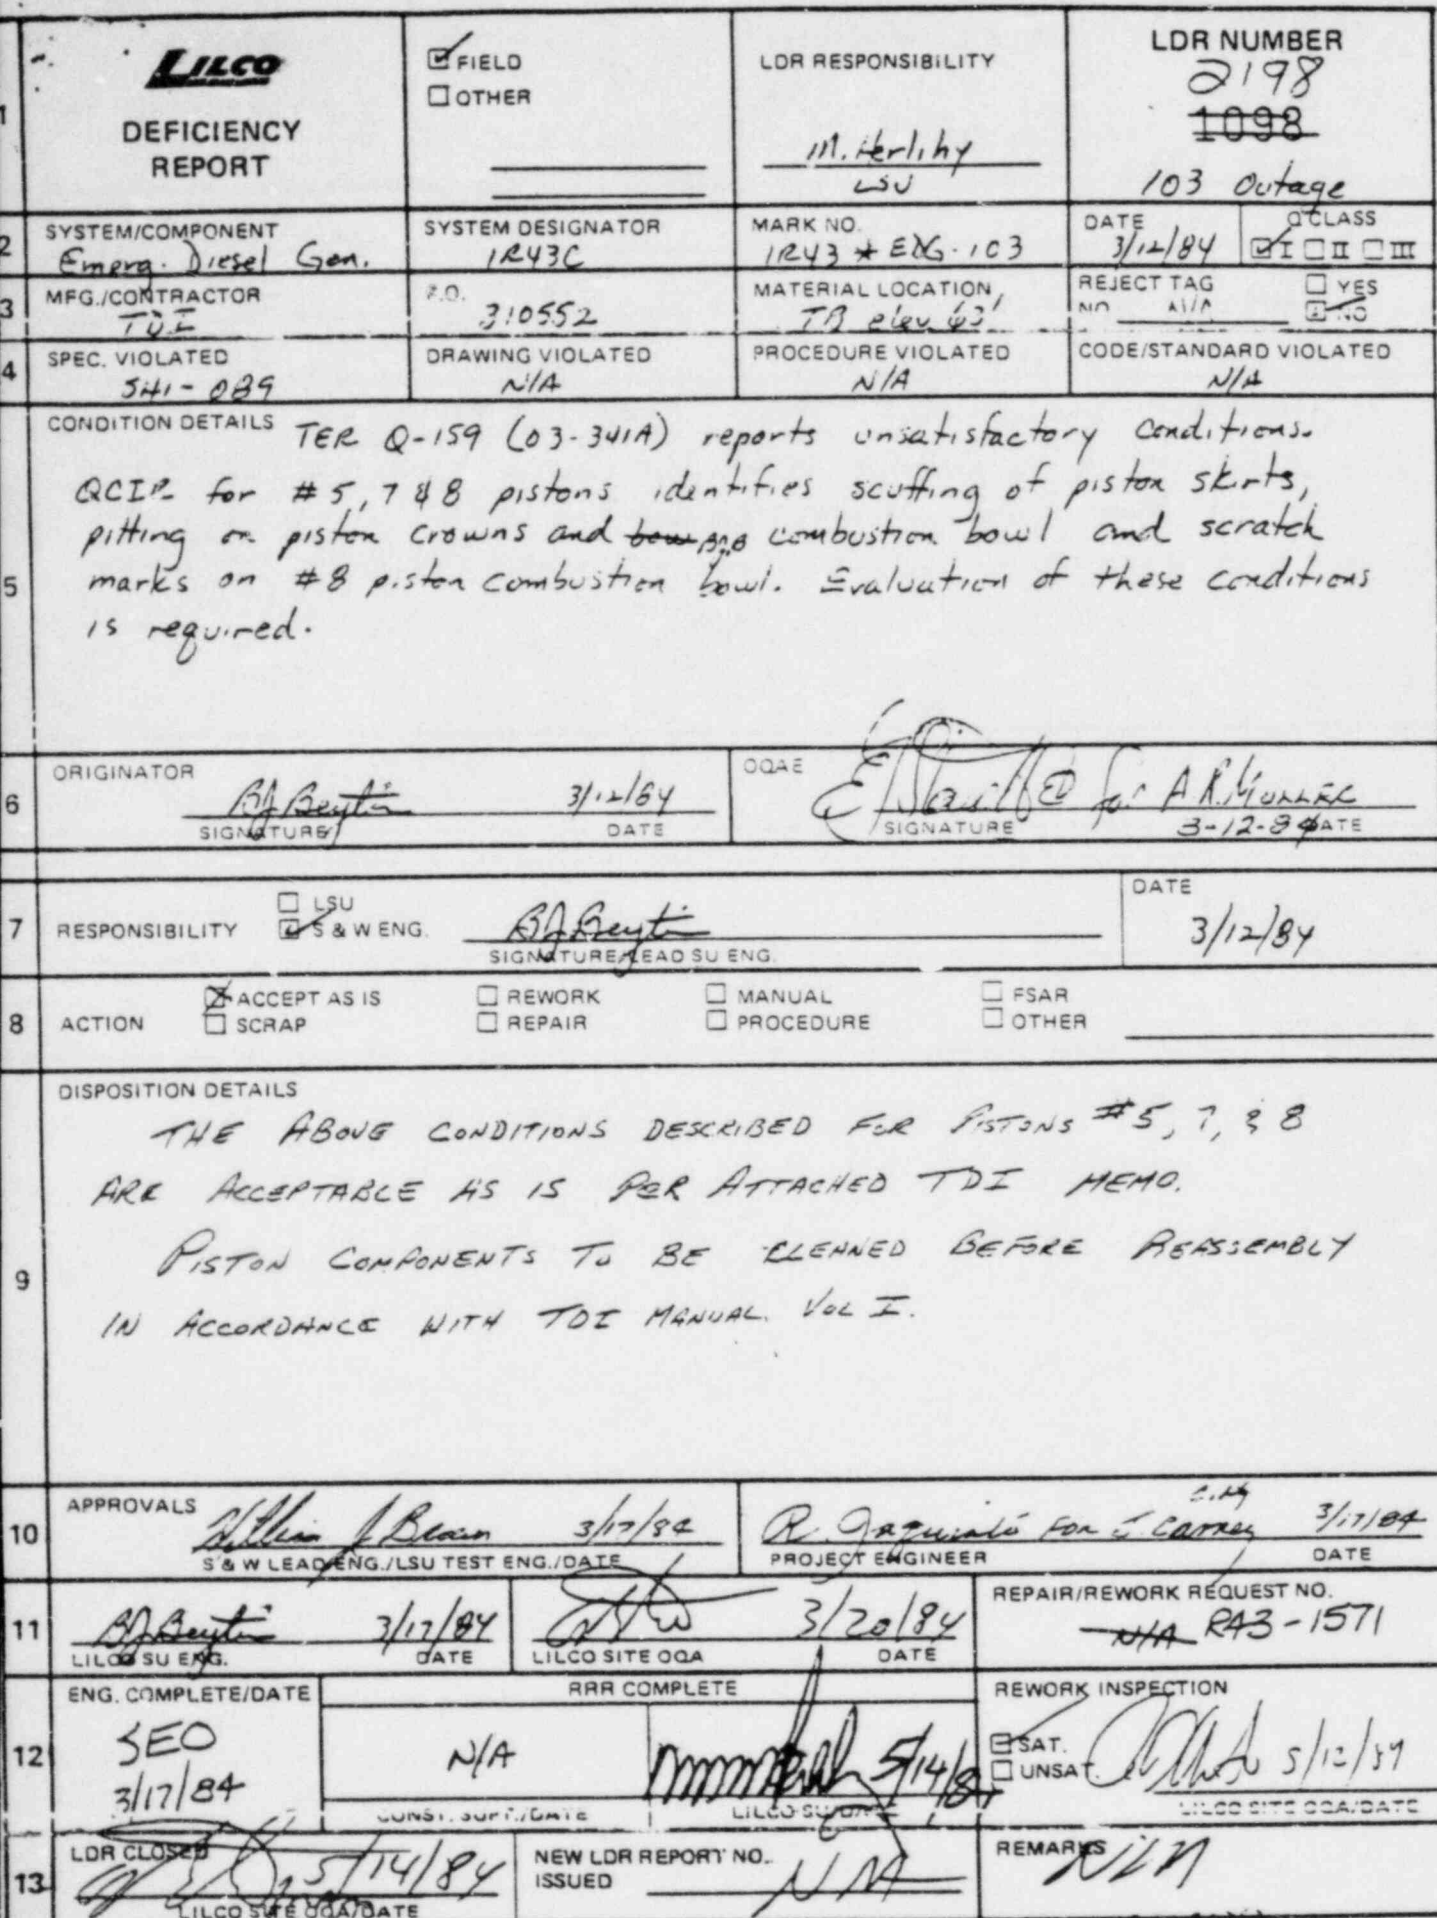 LILCO
DEFICIENCY
REPORT
FIELD
OTHER
LDR RESPONSIBILITY
M. Herlihy
LSU
LDR NUMBER
2198
1098
103 Outage
1
2
SYSTEM/COMPONENT
Emerg. Diesel Gen.
SYSTEM DESIGNATOR
1R43C
MARK NO.
1R43 * EDG-103
DATE
3/12/84
Q CLASS
I II III
3
MFG./CONTRACTOR
TDI
P.O.
310552
MATERIAL LOCATION
TB elev 63'
REJECT TAG
NO. N/A
YES
NO
4
SPEC. VIOLATED
SH1-089
DRAWING VIOLATED
N/A
PROCEDURE VIOLATED
N/A
CODE/STANDARD VIOLATED
N/A
5
CONDITION DETAILS TER Q-159 (03-341A) reports unsatisfactory conditions.
QCIR for #5, 7 & 8 pistons identifies scuffing of piston skirts,
pitting on piston crowns and combustion bowl and scratch
marks on #8 piston combustion bowl. Evaluation of these conditions
is required.
6
ORIGINATOR
BJ Beyti 3/12/84
SIGNATURE DATE
OQAE
for A R. Muller
SIGNATURE 3-12-84 DATE
7
RESPONSIBILITY
LSU
S & W ENG.
BJ Beyti
SIGNATURE/LEAD SU ENG.
DATE
3/12/84
8
ACTION
ACCEPT AS IS REWORK MANUAL FSAR
SCRAP REPAIR PROCEDURE OTHER
9
DISPOSITION DETAILS
THE ABOVE CONDITIONS DESCRIBED FOR PISTONS #5, 7, & 8
ARE ACCEPTABLE AS IS PER ATTACHED TDI MEMO.
PISTON COMPONENTS TO BE CLEANED BEFORE REASSEMBLY
IN ACCORDANCE WITH TDI MANUAL VOL I.
10
APPROVALS
William J Beam 3/17/84
S & W LEAD ENG./LSU TEST ENG./DATE
FOR J. Carney 3/17/84
PROJECT ENGINEER DATE
11
BJ Beyti 3/17/84
LILCO SU ENG. DATE
3/20/84
LILCO SITE OQA DATE
REPAIR/REWORK REQUEST NO.
N/A R43-1571
12
ENG. COMPLETE/DATE
SEO
3/17/84
RRR COMPLETE
N/A
CONST. SUPT./DATE
5/14/84
LILCO SU/DATE
REWORK INSPECTION
SAT.
UNSAT.
5/12/84
LILCO SITE OQA/DATE
13
LDR CLOSED
5/14/84
LILCO SITE OQA/DATE
NEW LDR REPORT NO.
ISSUED
REMARKS